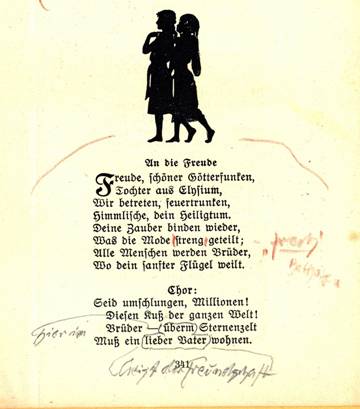 An die Freude
Freude, schöner Götterfunken,
Tochter aus Elysium,
Wir betreten, feuertrunken,
Himmlische, dein Heiligtum.
Deine Zauber binden wieder,
Was die Mode streng geteilt;
Alle Menschen werden Brüder,
Wo dein sanfter Flügel weilt.
Chor:
Seid umschlungen, Millionen!
Diesen Kuß der ganzen Welt!
Brüder — überm Sternenzelt
Muß ein lieber Vater wohnen.
341